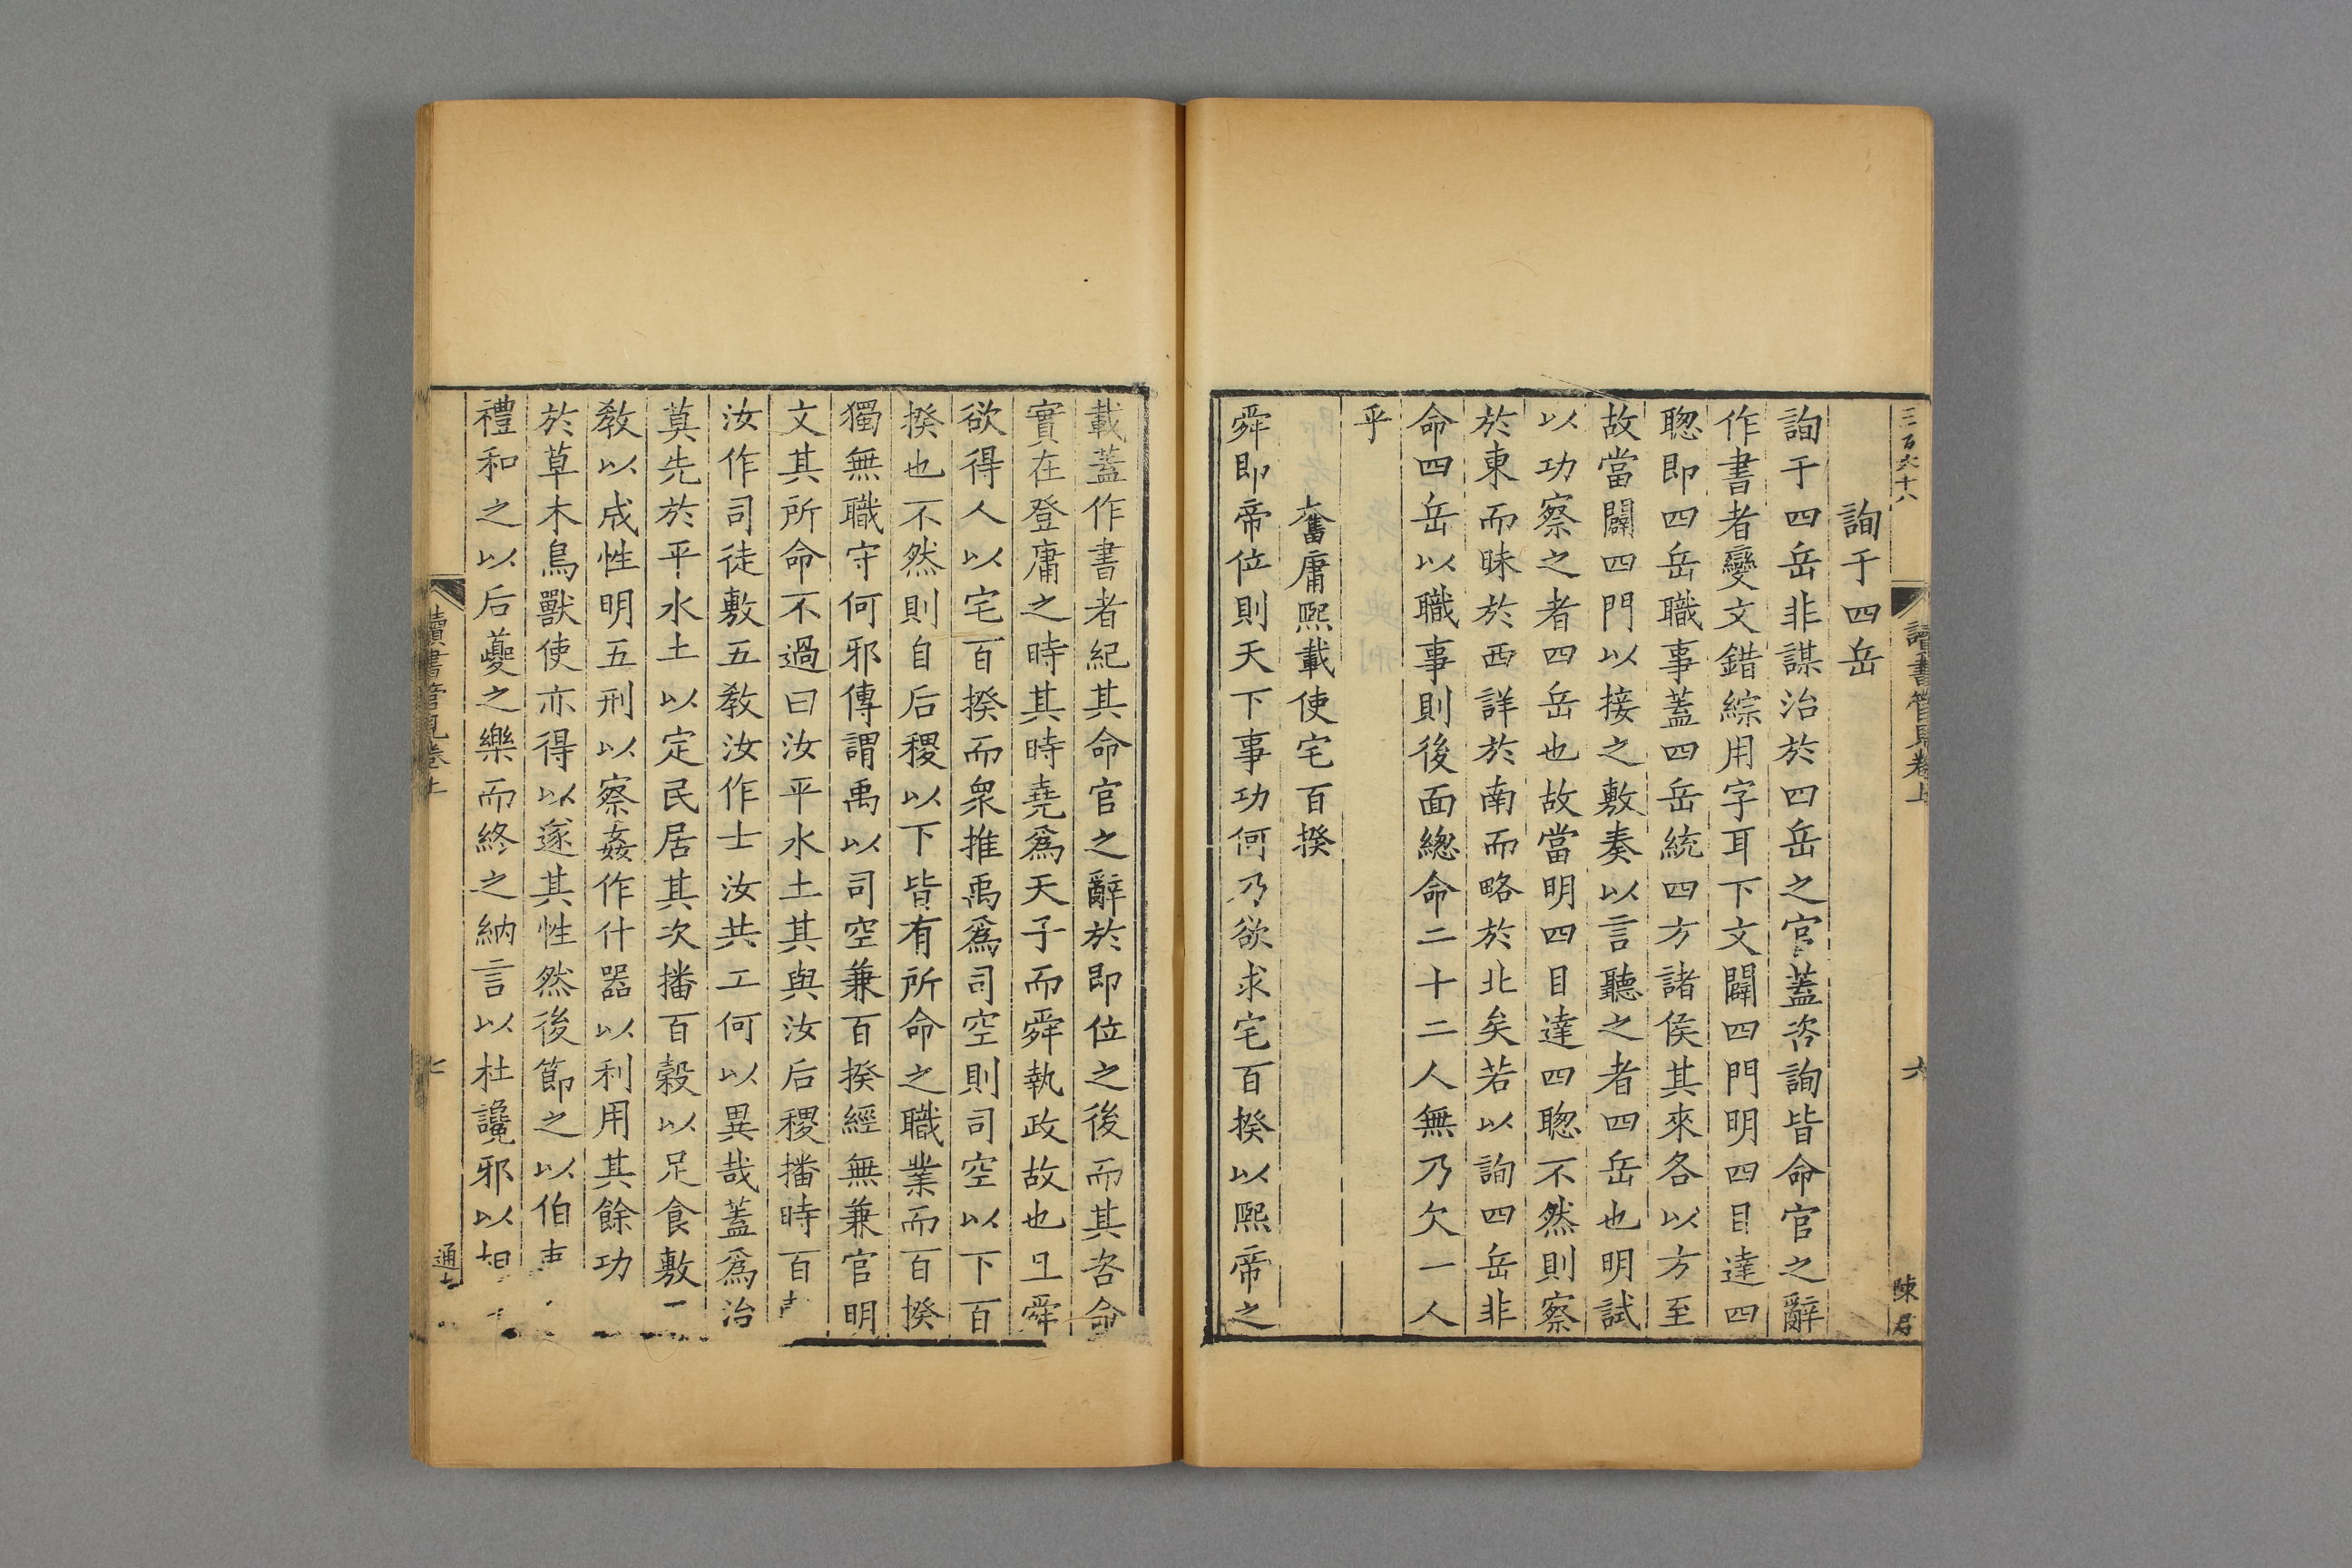 三百六十八
讀書管見卷上
六
陳君
詢于四岳
詢于四岳非謀治於四岳之官蓋咨詢皆命官之辭
作書者變文錯綜用字耳下文闢四門明四目達四
聦即四岳職事蓋四岳統四方諸侯其來各以方至
故當闢四門以接之敷奏以言聽之者四岳也明試
以功察之者四岳也故當明四目達四聦不然則察
於東而昧於西詳於南而略於北矣若以詢四岳非
命四岳以職事則後面緫命二十二人無乃欠一人
乎
奮庸熈載使宅百揆
舜即帝位則天下事功何乃欲求宅百揆以熈帝之
載蓋作書者紀其命官之辭於即位之後而其咨命
實在登庸之時其時堯爲天子而舜執政故也且舜
欲得人以宅百揆而衆推禹爲司空則司空以下百
揆也不然則自后稷以下皆有所命之職業而百揆
獨無職守何邪傳謂禹以司空兼百揆經無兼官明
文其所命不過曰汝平水土其與汝后稷播時百
汝作司徒敷五教汝作士汝共工何以異哉蓋爲治
莫先於平水土以定民居其次播百穀以足食敷
教以成性明五刑以察姦作什器以利用其餘功
於草木鳥獸使亦得以遂其性然後節之以伯
禮和之以后夔之樂而終之納言以杜讒邪以
讀書管見卷上
七
通